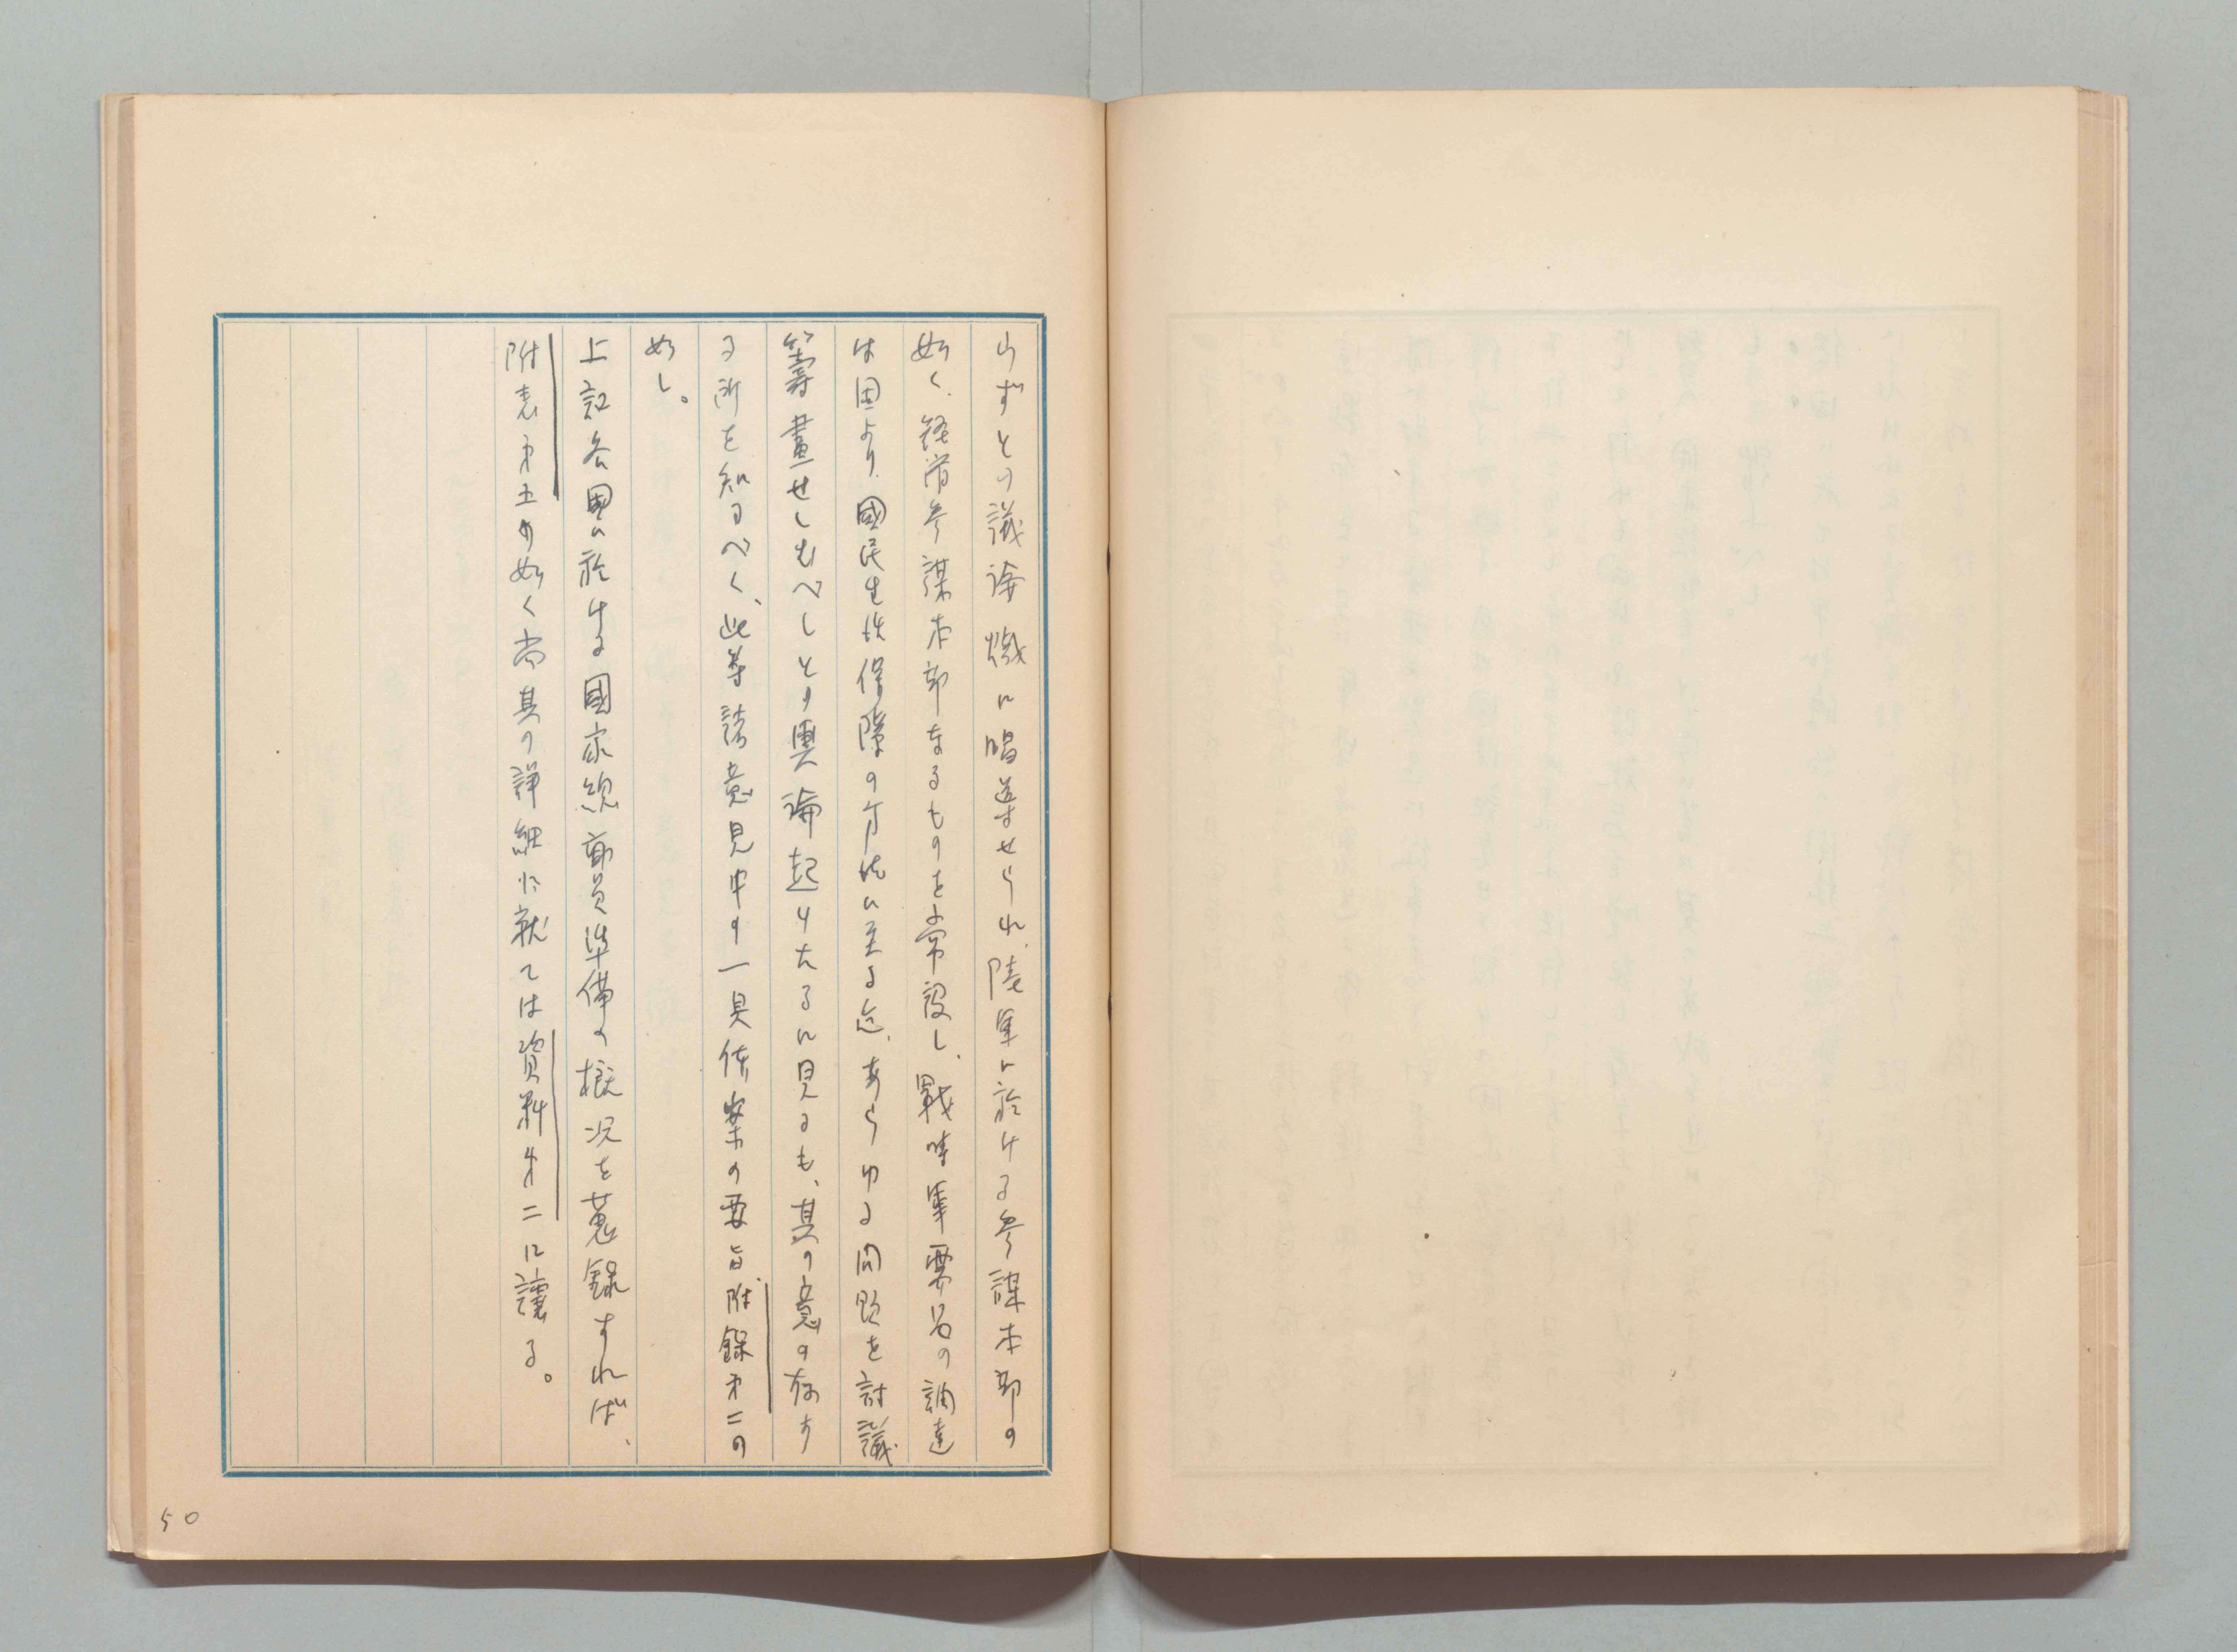 らずとの議論熾に唱導せられ、陸軍に於ける参謀本部の
如く、経済参謀本部なるものを常設し、戰時軍要品の調達
は固より、國民生活保障の方法に至る迄、あらゆる問題を討議
籌畫せしむべしとの輿論起りたるに見るも、其の意の存す
る所を知るべく、此等諸意見中の一具体案の要旨附録第二の
如し。
上記各國に於ける國家総動員準備の概況を蒐録すれば、
附表第五の如く尚其の詳細に就ては資料第二に譲る。
50